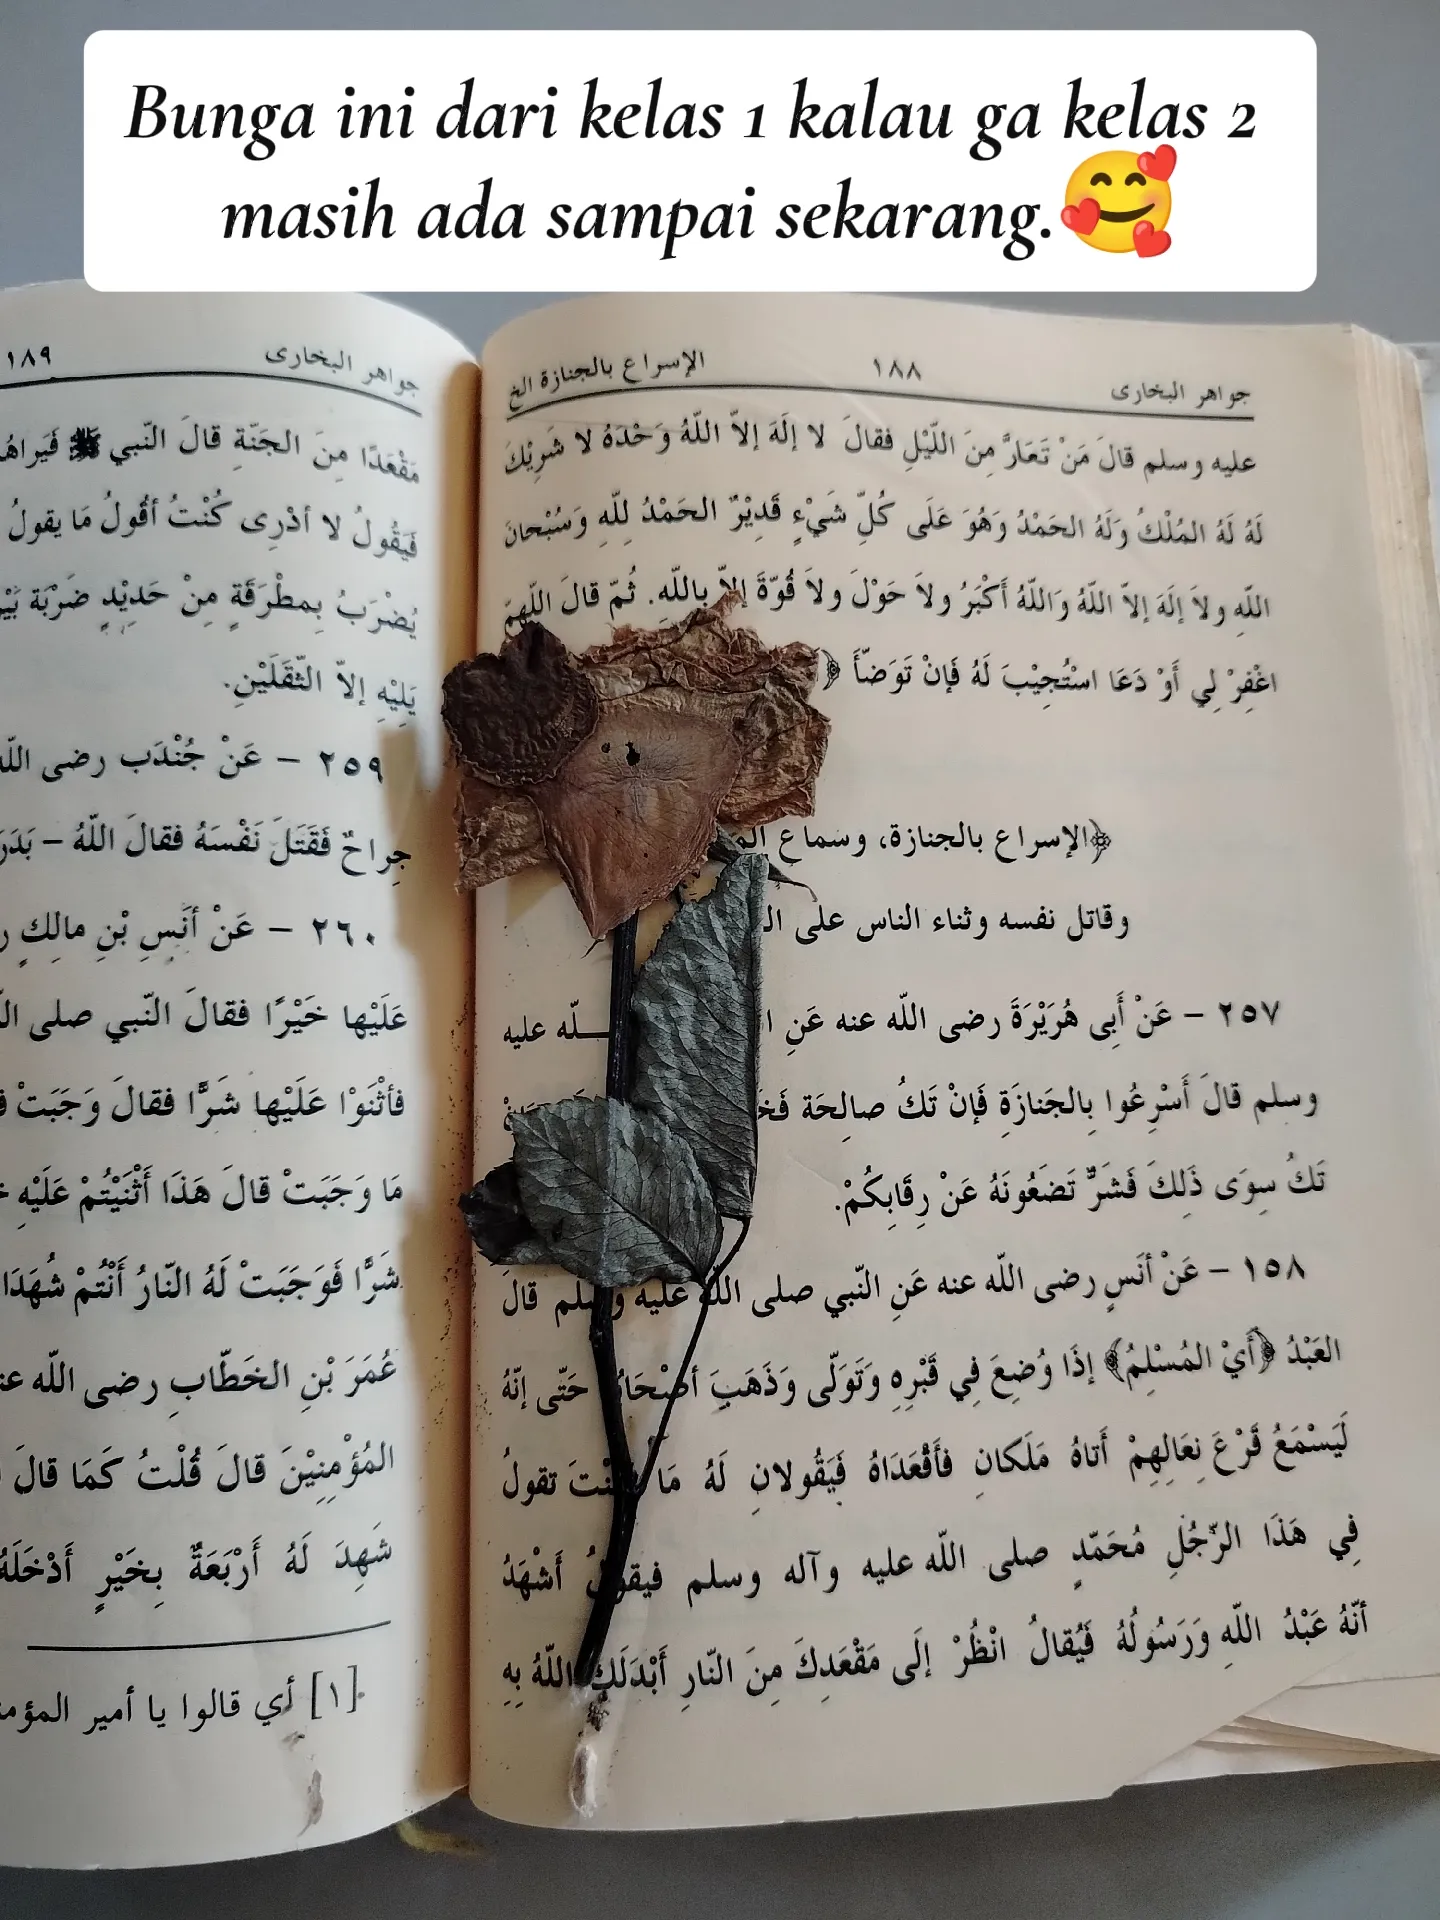 Bunga ini dari kelas 1 kalau ga kelas 2
masih ada sampai sekarang.🥰
جواهر البخارى ١٨٨ الإسراع بالجنازة الخ
عليه وسلم قالَ مَنْ تَعَارَّ مِنَ اللّيْلِ فقالَ لا إلَهَ إلاّ اللّهُ وَحْدَهُ لا شَرِيْكَ
لَهُ لَهُ المُلْكُ وَلَهُ الحَمْدُ وَهُوَ عَلَى كُلِّ شَيْءٍ قَدِيْرٌ الحَمْدُ لِلّهِ وَسُبْحانَ
اللّهِ ولاَ إلَهَ إلاّ اللّهُ وَاللّهُ أَكْبَرُ ولاَ حَوْلَ ولاَ قُوّةَ إلاّ بِاللّهِ. ثُمّ قالَ اللّهمّ
اغْفِرْ لِي أَوْ دَعَا اسْتُجِيْبَ لَهُ فَإنْ تَوَضّأَ ﴿
﴿الإسراع بالجنازة، وسماع
وقاتل نفسه وثناء الناس على
٢٥٧ – عَنْ أَبِى هُرَيْرَةَ رضى اللّه عنه عَنِ عليه
وسلم قالَ أَسْرِعُوا بِالجَنازَةِ فَإنْ تَكُ صالِحَة
تَكُ سِوَى ذَلِكَ فَشَرٌّ تَضَعُونَهُ عَنْ رِقَابِكُمْ.
١٥٨ – عَنْ أَنَسٍ رضى اللّه عنه عَنِ النّبي صلى اللّه عليه وسلم قالَ
العَبْدُ ﴿أَيْ المُسْلِمُ﴾ إذَا وُضِعَ فِي قَبْرِهِ وَتَوَلّى وَذَهَبَ أصْحَابُهُ حَتّى إنّهُ
لَيَسْمَعُ قَرْعَ نِعَالِهِمْ أَتاهُ مَلَكانِ فأَقْعَدَاهُ فَيَقُولانِ لَهُ مَا كُنْتَ تقولُ
فِي هَذَا الرّجُلِ مُحَمّدٍ صلى اللّه عليه وآله وسلم فيقولُ أَشْهَدُ
أنّهُ عَبْدُ اللّهِ وَرَسُولُهُ فَيُقالُ انْظُرْ إلَى مَقْعَدِكَ مِنَ النّارِ أَبْدَلَكَ اللّهُ بِهِ
جواهر البخارى ١٨٩
مَقْعَدًا مِنَ الجَنّةِ قالَ النّبي ﷺ
فَيَقُولُ لا أدْرِى كُنْتُ أقُولُ مَا يقولُ
يُضْرَبُ بِمطْرَقَةٍ مِنْ حَدِيْدٍ ضَرْبَة
يَلِيْهِ إلاّ الثّقَلَيْنِ.
٢٥٩ – عَنْ جُنْدَب رضى
جِراحٌ فَقَتَلَ نَفْسَهُ فقالَ اللّهُ –
٢٦٠ – عَنْ أَنَسِ بْنِ مالِكٍ
عَلَيْها خَيْرًا فقالَ النّبي صلى
فأثْنَوْا عَلَيْها شَرًّا فقالَ وَجَبَتْ
مَا وَجَبَتْ قالَ هَذَا أَثْنَيْتُمْ عَلَيْهِ
شَرًّا فَوَجَبَتْ لَهُ النّارُ أَنْتُمْ
عُمَرَ بْنِ الخَطّابِ رضى اللّه
المُؤْمِنِيْنَ قالَ قُلْتُ كَمَا قالَ
شَهِدَ لَهُ أَرْبَعَةٌ بِخَيْرٍ
[١] أي قالوا يا أمير